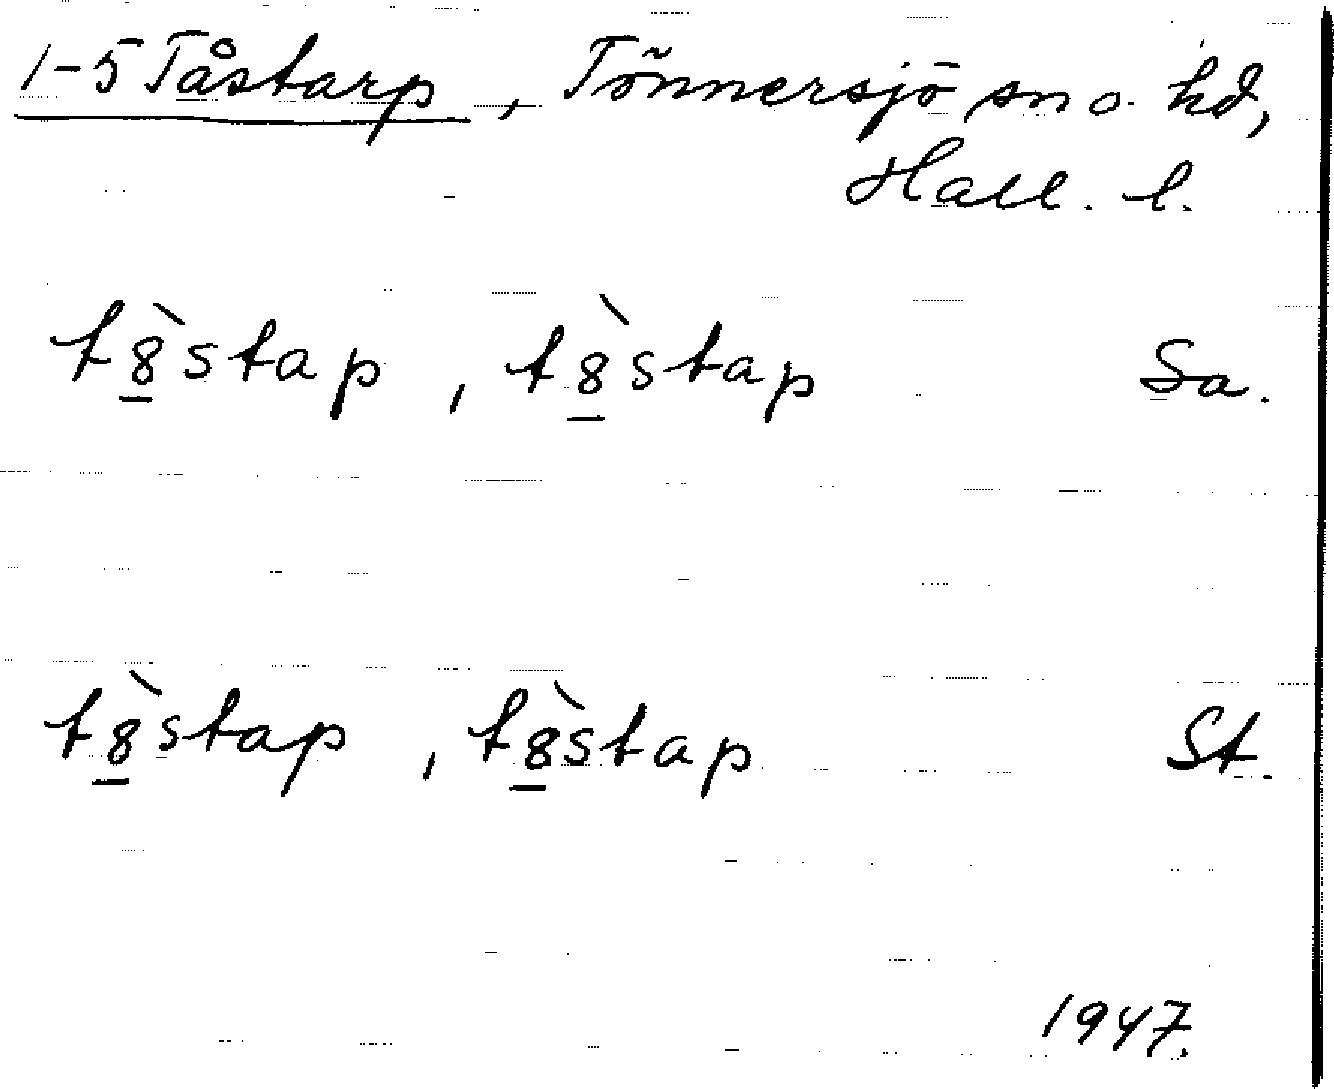 1-5 Tåstarp, Tönnersjö sn o. hd,
Hall. l.
t8̲̀stap, t8̲̀stap Sa.
t8̲̀stap, t8̲̀stap St.
1947.